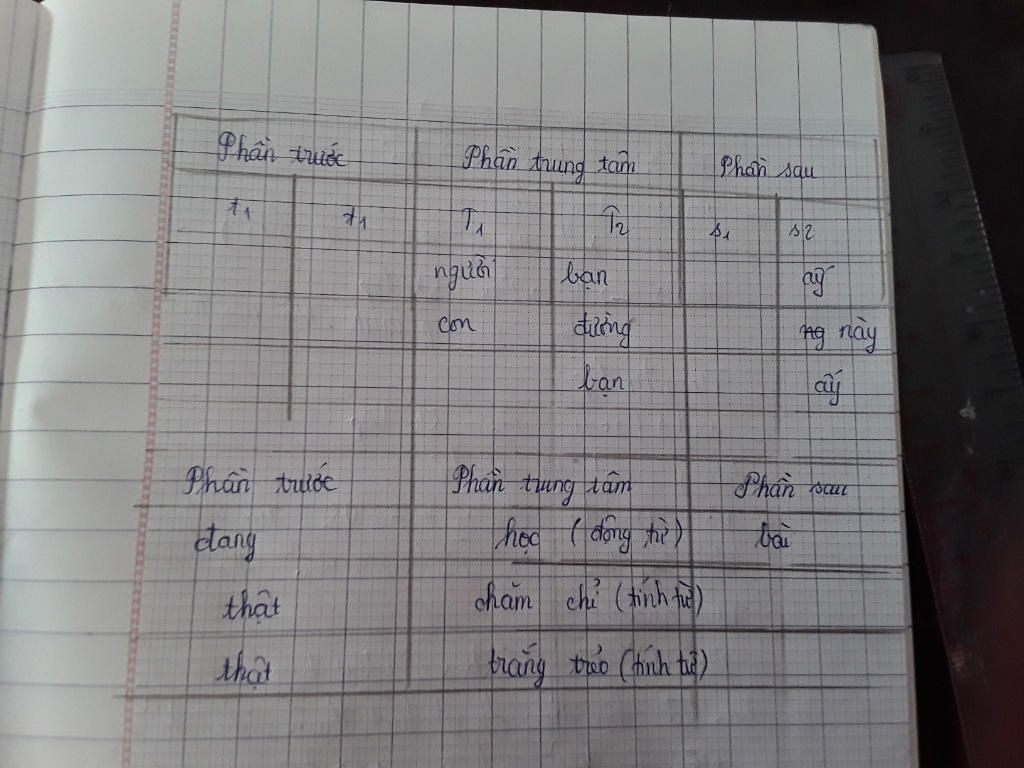 Phần trước Phần trung tâm Phần sau
t1 t1 T1 T2 s1 s2
người bạn ấy
con đường này
bạn ấy
Phần trước Phần trung tâm Phần sau
đang học (động từ) bài
thật chăm chỉ (tính từ)
thật trắng trẻo (tính từ)